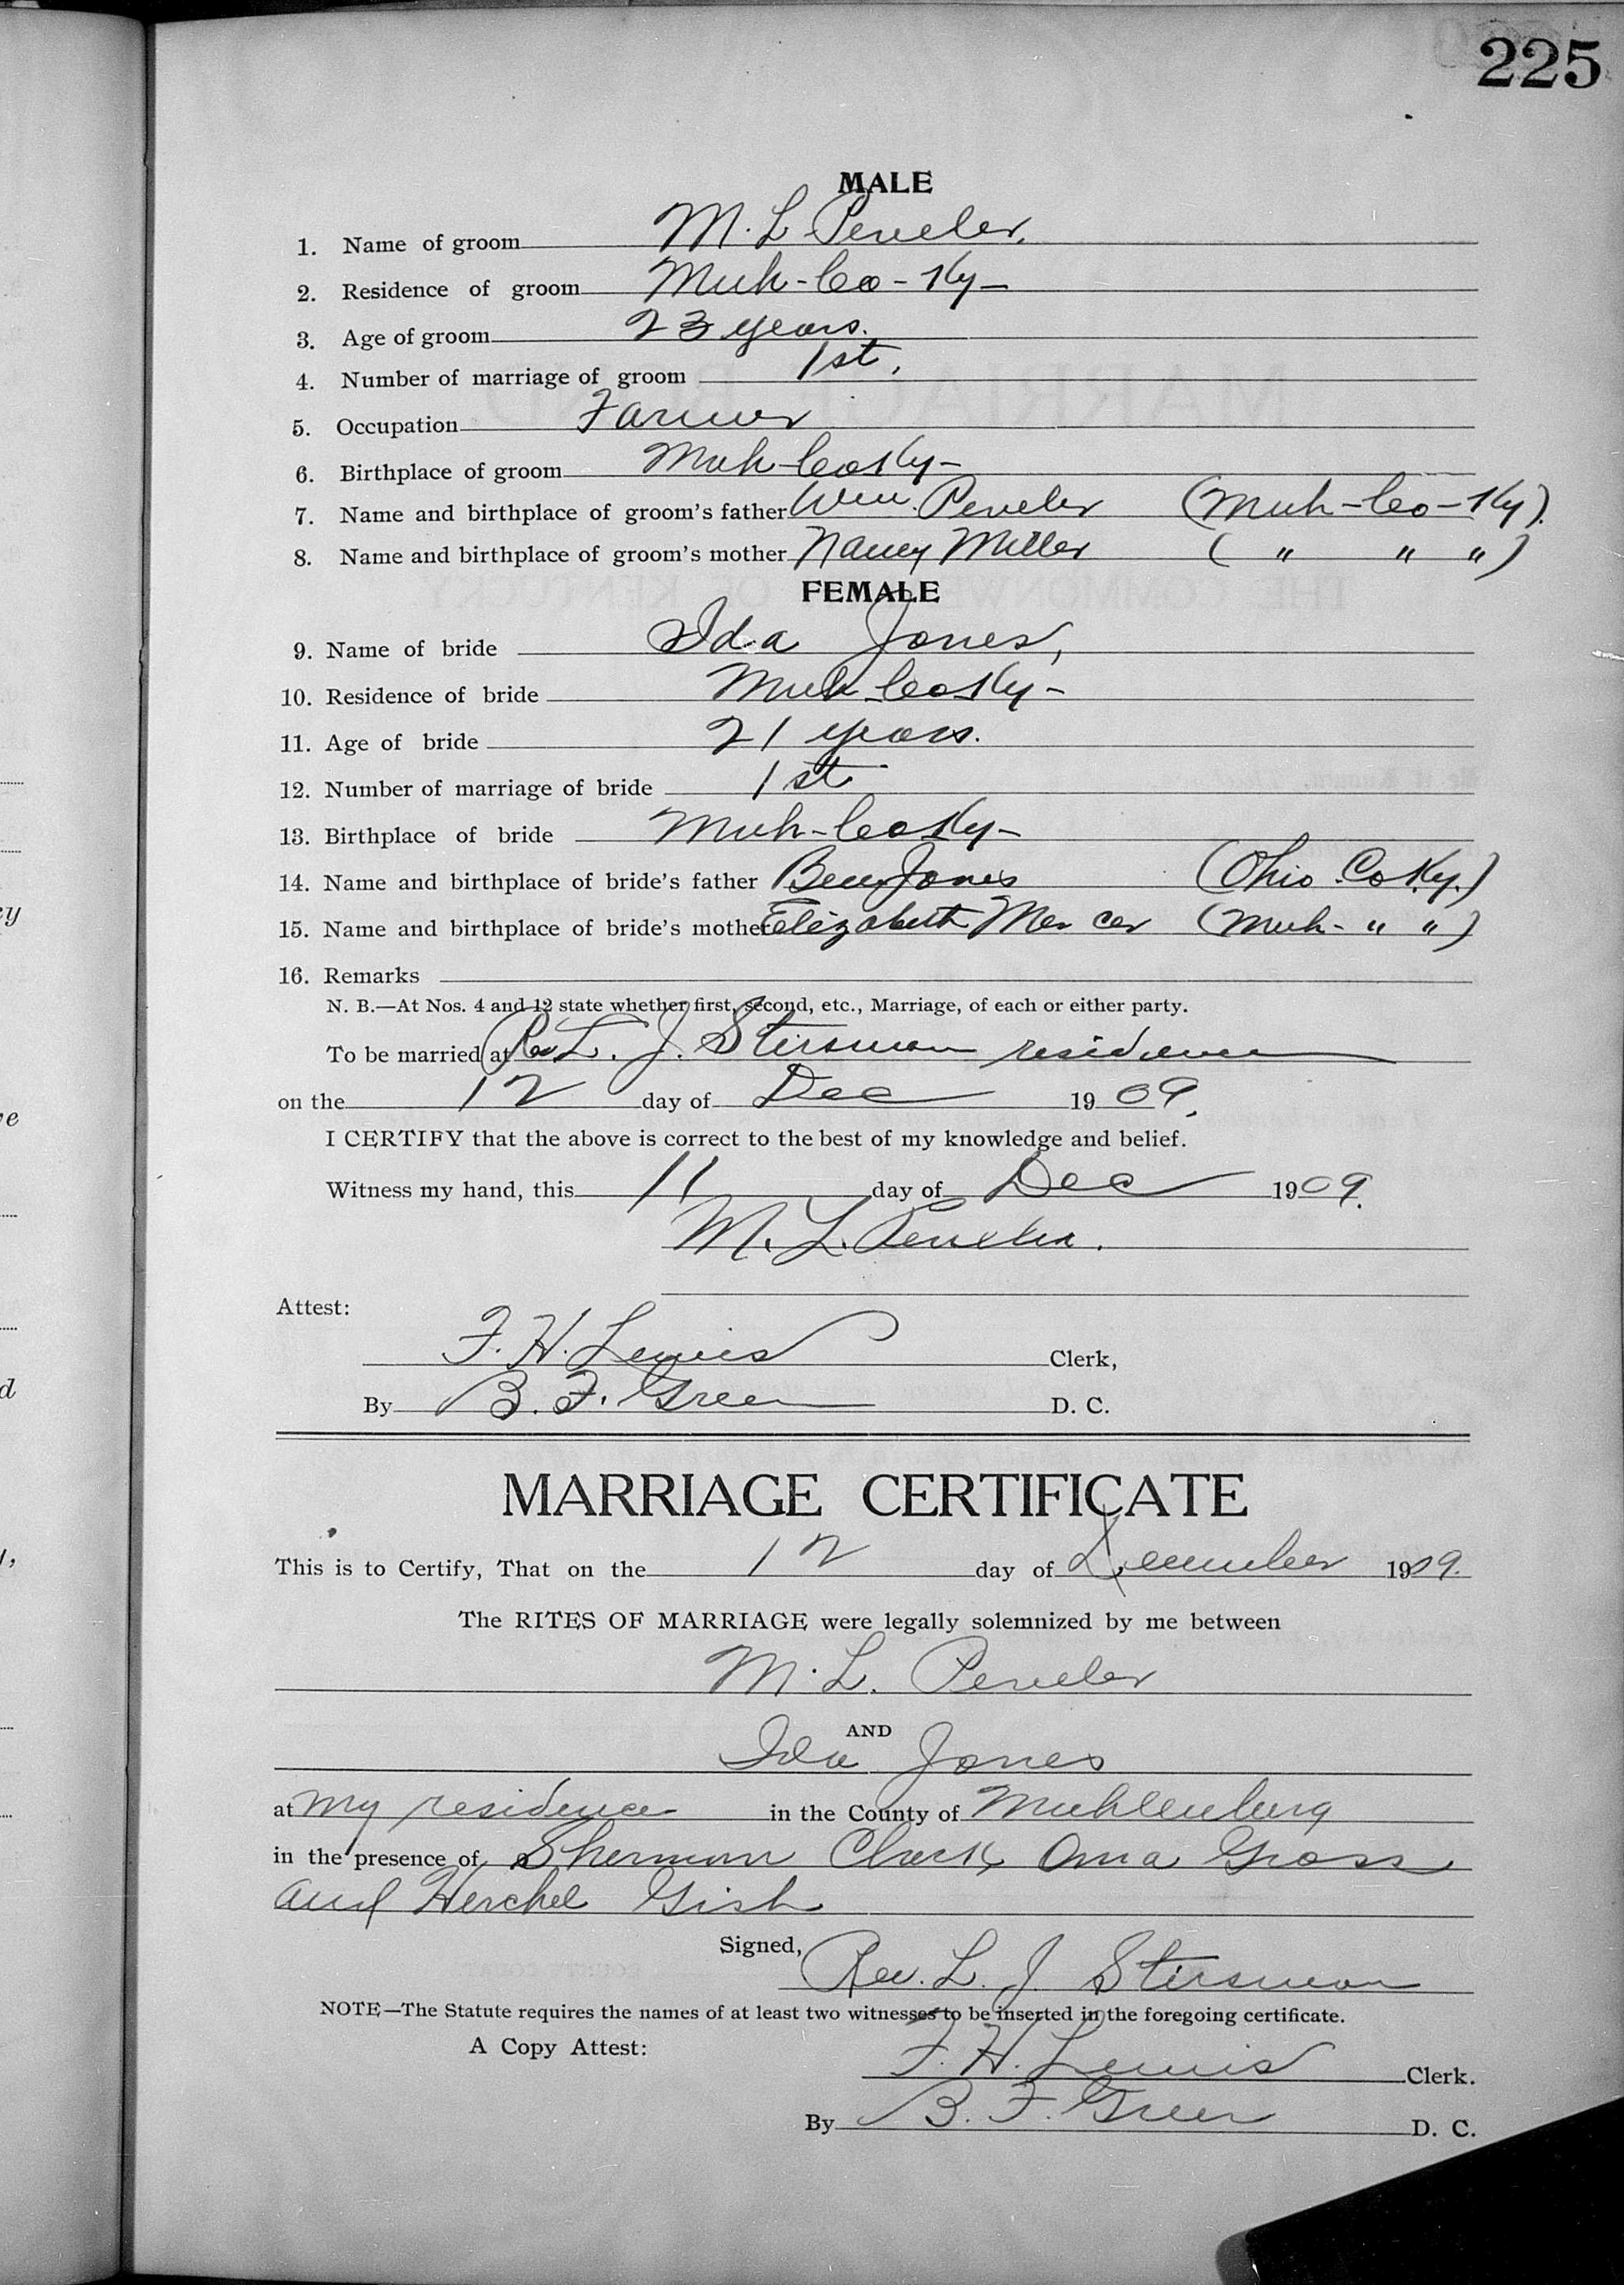 225
MALE
1. Name of groom M. L Peveler.
2. Residence of groom Muh-Co-Ky-
3. Age of groom 23 years.
4. Number of marriage of groom 1st.
5. Occupation Farmer
6. Birthplace of groom Muh-Co Ky-
7. Name and birthplace of groom's father Wm. Peveler (Muh-Co-Ky).
8. Name and birthplace of groom's mother Nancy Miller ( " " " )
FEMALE
9. Name of bride Ida Jones,
10. Residence of bride Muh Co Ky-
11. Age of bride 21 years.
12. Number of marriage of bride 1st
13. Birthplace of bride Muh-Co Ky-
14. Name and birthplace of bride's father Ben Jones (Ohio Co Ky.)
15. Name and birthplace of bride's mother Elizabeth Mercer (Muh- " " )
16. Remarks
N. B.—At Nos. 4 and 12 state whether first, second, etc., Marriage, of each or either party.
To be married at Rev L. J. Stirsman residence
on the 12 day of Dec 1909.
I CERTIFY that the above is correct to the best of my knowledge and belief.
Witness my hand, this 11 day of Dec 1909.
M. L. Peveler.
Attest:
F. H. Lewis Clerk,
By B. F. Green D. C.
MARRIAGE CERTIFICATE
This is to Certify, That on the 12 day of December 1909.
The RITES OF MARRIAGE were legally solemnized by me between
M. L. Peveler
AND
Ida Jones
at my residence in the County of Muhlenburg
in the presence of Sherman Clark, Oma Gross
and Herchel Gish
Signed, Rev. L. J. Stirsman
NOTE—The Statute requires the names of at least two witnesses to be inserted in the foregoing certificate.
A Copy Attest:
F. H. Lewis Clerk.
By B. F. Green D. C.